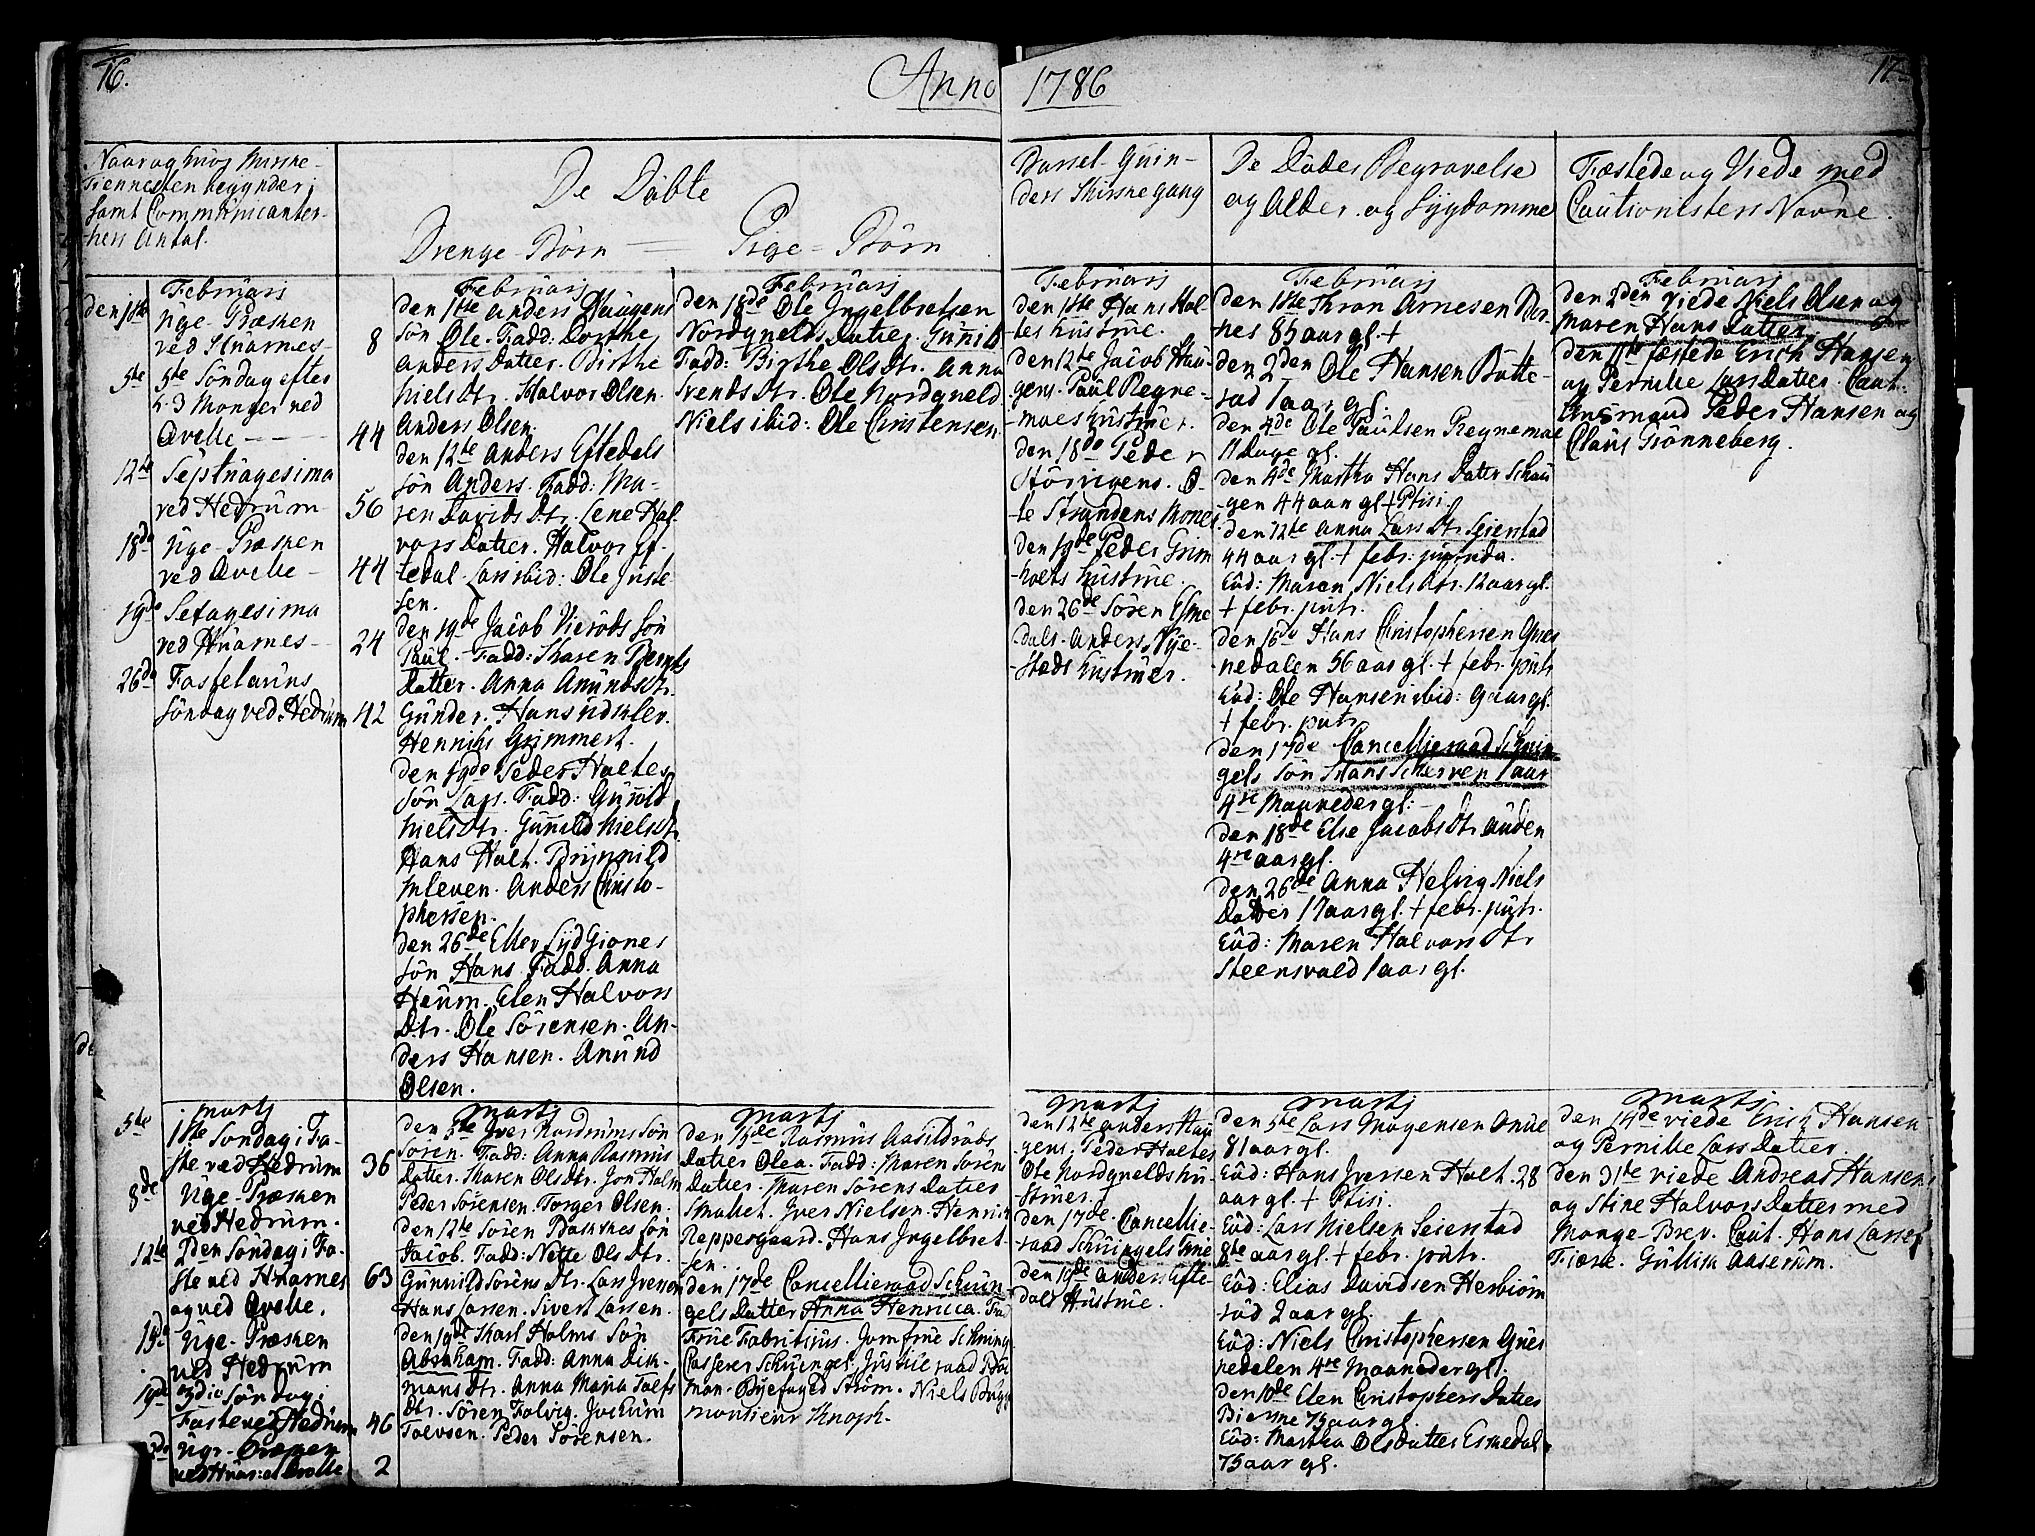 16.
Anno 1786
17
Naar og hvos Kirske-
Tiennesten begynder;
samt Communicanter-
hers Antal.
De Döbte
Drenge-Börn — Pige-Börn
Barsel-Quin-
ders Kirkegang
De Dödes Begravelse
og Alder og Sygdomme
Fæstede og Viede med
Cautionisters Navne.
Februarj
den 1ste Uge-Præken
ved Kvarnes-
8
5te 5te Söndag efter
h. 3 Konger ved
Qvelle - - - 44
12te Septuagesima
ved Hedrum 56
18de Uge-Præken
ved Qvelle - 44
19de Sexagesima
ved Kvarnes - 24
26de Fastelavns
Söndag ved Hedrum 42
Februarj
Den 1ste Anders Haugens
Sön Ole. Fadd: Dorthe
Anders Datter. Birthe
Niels Dtr. Halvor Olsen.
Anders Olsen.
den 12te Anders Eftedals
Sön Anders. Fadd: Ma-
ren Davids Dtr. Lene Hal-
vors Datter. Halvor Ef-
tedal. Lars ibid: Ole Juste-
sen.
den 19de Jacob Vieröds Sön
Paul. Fadd: Karen Bernts
Datter. Anna Amunds Dtr.
Gunder. Hans Udklev.
Henrich Grimmert.
den 19de Peder Holtes
Sön Lars. Fadd: Gunild
Niels Dtr. Gunild Niels Dtr.
Hans Holt. Brynnild
Kleven. Anders Christo-
phersen.
den 26de Ellev Lyd Giones
Sön Hans. Fadd. Anna
Heum. Elen Halvors
Dtr. Ole Sörensen. An-
ders Hansen. Amund
Olsen.
Februarj
Den 18de Ole Ingelbretsen
Nordqvelds Datter Gunild
Fadd: Birthe Ols Dtr. Anna
Svends Dtr. Ole Nordqveld
Niels ibid: Ole Christensen.
Februarj
den 1ste Hans Hol-
tes Hustrue.
den 12te Jacob Hau-
gens. Paul Regne-
moes Hustruer.
den 18de Peder
Störrigens. O-
le Strandens Koner.
den 19de Peder Grim-
holts Hustrue.
den 26de Sören Esme
dals. Anders Nye-
stads Hustruer.
Februarj
den 1ste Thron Arnesen Bør-
nes 85 aar gl. +
den 2den Ole Hansen Bötte-
röd 1 aar gl.
den 4de Ole Paulsen Regnemoe
11 dage gl.
den 4de Martha Hans Datter Schau
gen 44 aar gl. + Ptisi.
den 12te Anna Lars Dtr. Seierstad
44 aar gl. + febr:
Eod: Maren Niels Dtr. 12 aar gl.
+ febr. putr.
den 16de Hans Christophersen Gues
nedalen 56 aar gl. + febr. putr
Eod: Ole Hansen ibid: 9 aar gl.
+ febr. putr
den 17de Cancellieraad Schvin
gels Sön Hans 1 aar
4re Maaneder gl: -
den 18de Else Jacobs Dtr. Auden
4re aar gl.
den 26de Anna Helvig Niels
Datter 17 aar gl. + febr. putr.
Eod: Maren Halvors Dtr
Steensvold 1 aar gl.
Februarj
den 2den viede Niels Olsen og
Maren Hans Datter.
den 11te fæstede Erich Hansen
og Pernille Lars Datter. Caut:
Ansmand Peder Hansen og
Claus Grönneberg.
Martj
5te 1ste Söndag i Fa-
ste ved Hedrum 36
8de Uge-Præken
ved Hedrum.
12te 2den Söndag i Fa-
ste ved Kvarnes 63
og ved Qvelle.
15de Uge-Præken
ved Hedrum
19de 3die Söndag i
Faste ved Hedrum 46
Uge-Præken
ved Kvar: et Qvelle 2
Martj
den 5te Iver Sön
Sören. Fadd: Anna Rasmus
Datter. Karen Ols Dtr. Jon Holm
Peder Sörensen. Torger Olsen.
den 12te Sören Bakkes Sön
Jacob. Fadd: Nette Ols Dtr.
Gunnild Sörens Dtr. Lars Iversen
Hans Larsen. Siver Larsen.
den 19de Karl Holms Sön
Abraham. Fadd: Anna Dik-
mans Dtr. Anna Maria Tolfs
Dtr. Sören Falvig. Jochum
Tolvsen. Peder Sörensen.
Martj
den 15de Rasmus Aasildröds
Datter Olea. Fadd: Karen Sörens
Datter. Maren Sörens Datter
Iver Nielsen. Henrich
Reppesgaard. Hans Ingelbret-
sen.
den 17de Cancellieraad Schvin-
gels Datter Anna Henrica. Fad
Frue Fabritius. Jomfrue Schving
Casserer Schvingel, Justice raad
man. Byefoged Ström. Niels Bugge
monsieur Knoph.
Martj
den 12te Anders Hau
gens. Peder Holtes
Ole Nordqvelds Hu-
struer.
den 17de Cancellie-
raad Schvingels Frue
den 19de Anders Efte-
dals Hustrue.
Martj
den 5te Lars Mogensen Onue
81 aar gl.
Eod: Hans Iversen Holt. 28
aar gl. + Ptisi.
Eod: Lars Nielsen Seierstad
8te aar gl. + febr. putr.
Eod: Elias Davidsen Herbiörn
röd 2 aar gl.
Eod: Niels Christophersen Gues
nedalen 4re Maaneder gl.
den 10de Elen Christophers Datter
Bierkne 75 aar gl.
Eod: Martha Ols Datter Esmedal.
75 aar gl.
Martj
den 14de viede Erich Hansen
og Pernille Lars Datter.
den 31te viede Andreas Hansen
og Stine Halvors Datter med
Konge-Brev. Caut. Hans Larsen
Fiære. Gullik Aaserum.